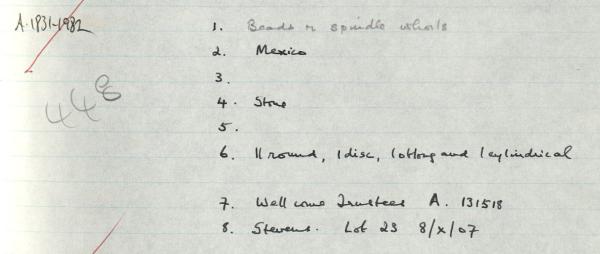 A.1931-1982
1. Beads or spindle whorls
2. Mexico
448
3.
4. Stone
5.
6. 11 round, 1 disc, 1 oblong and 1 cylindrical
7. Wellcome Trustees A. 131518
8. Stevens. Lot 23 8/x/07